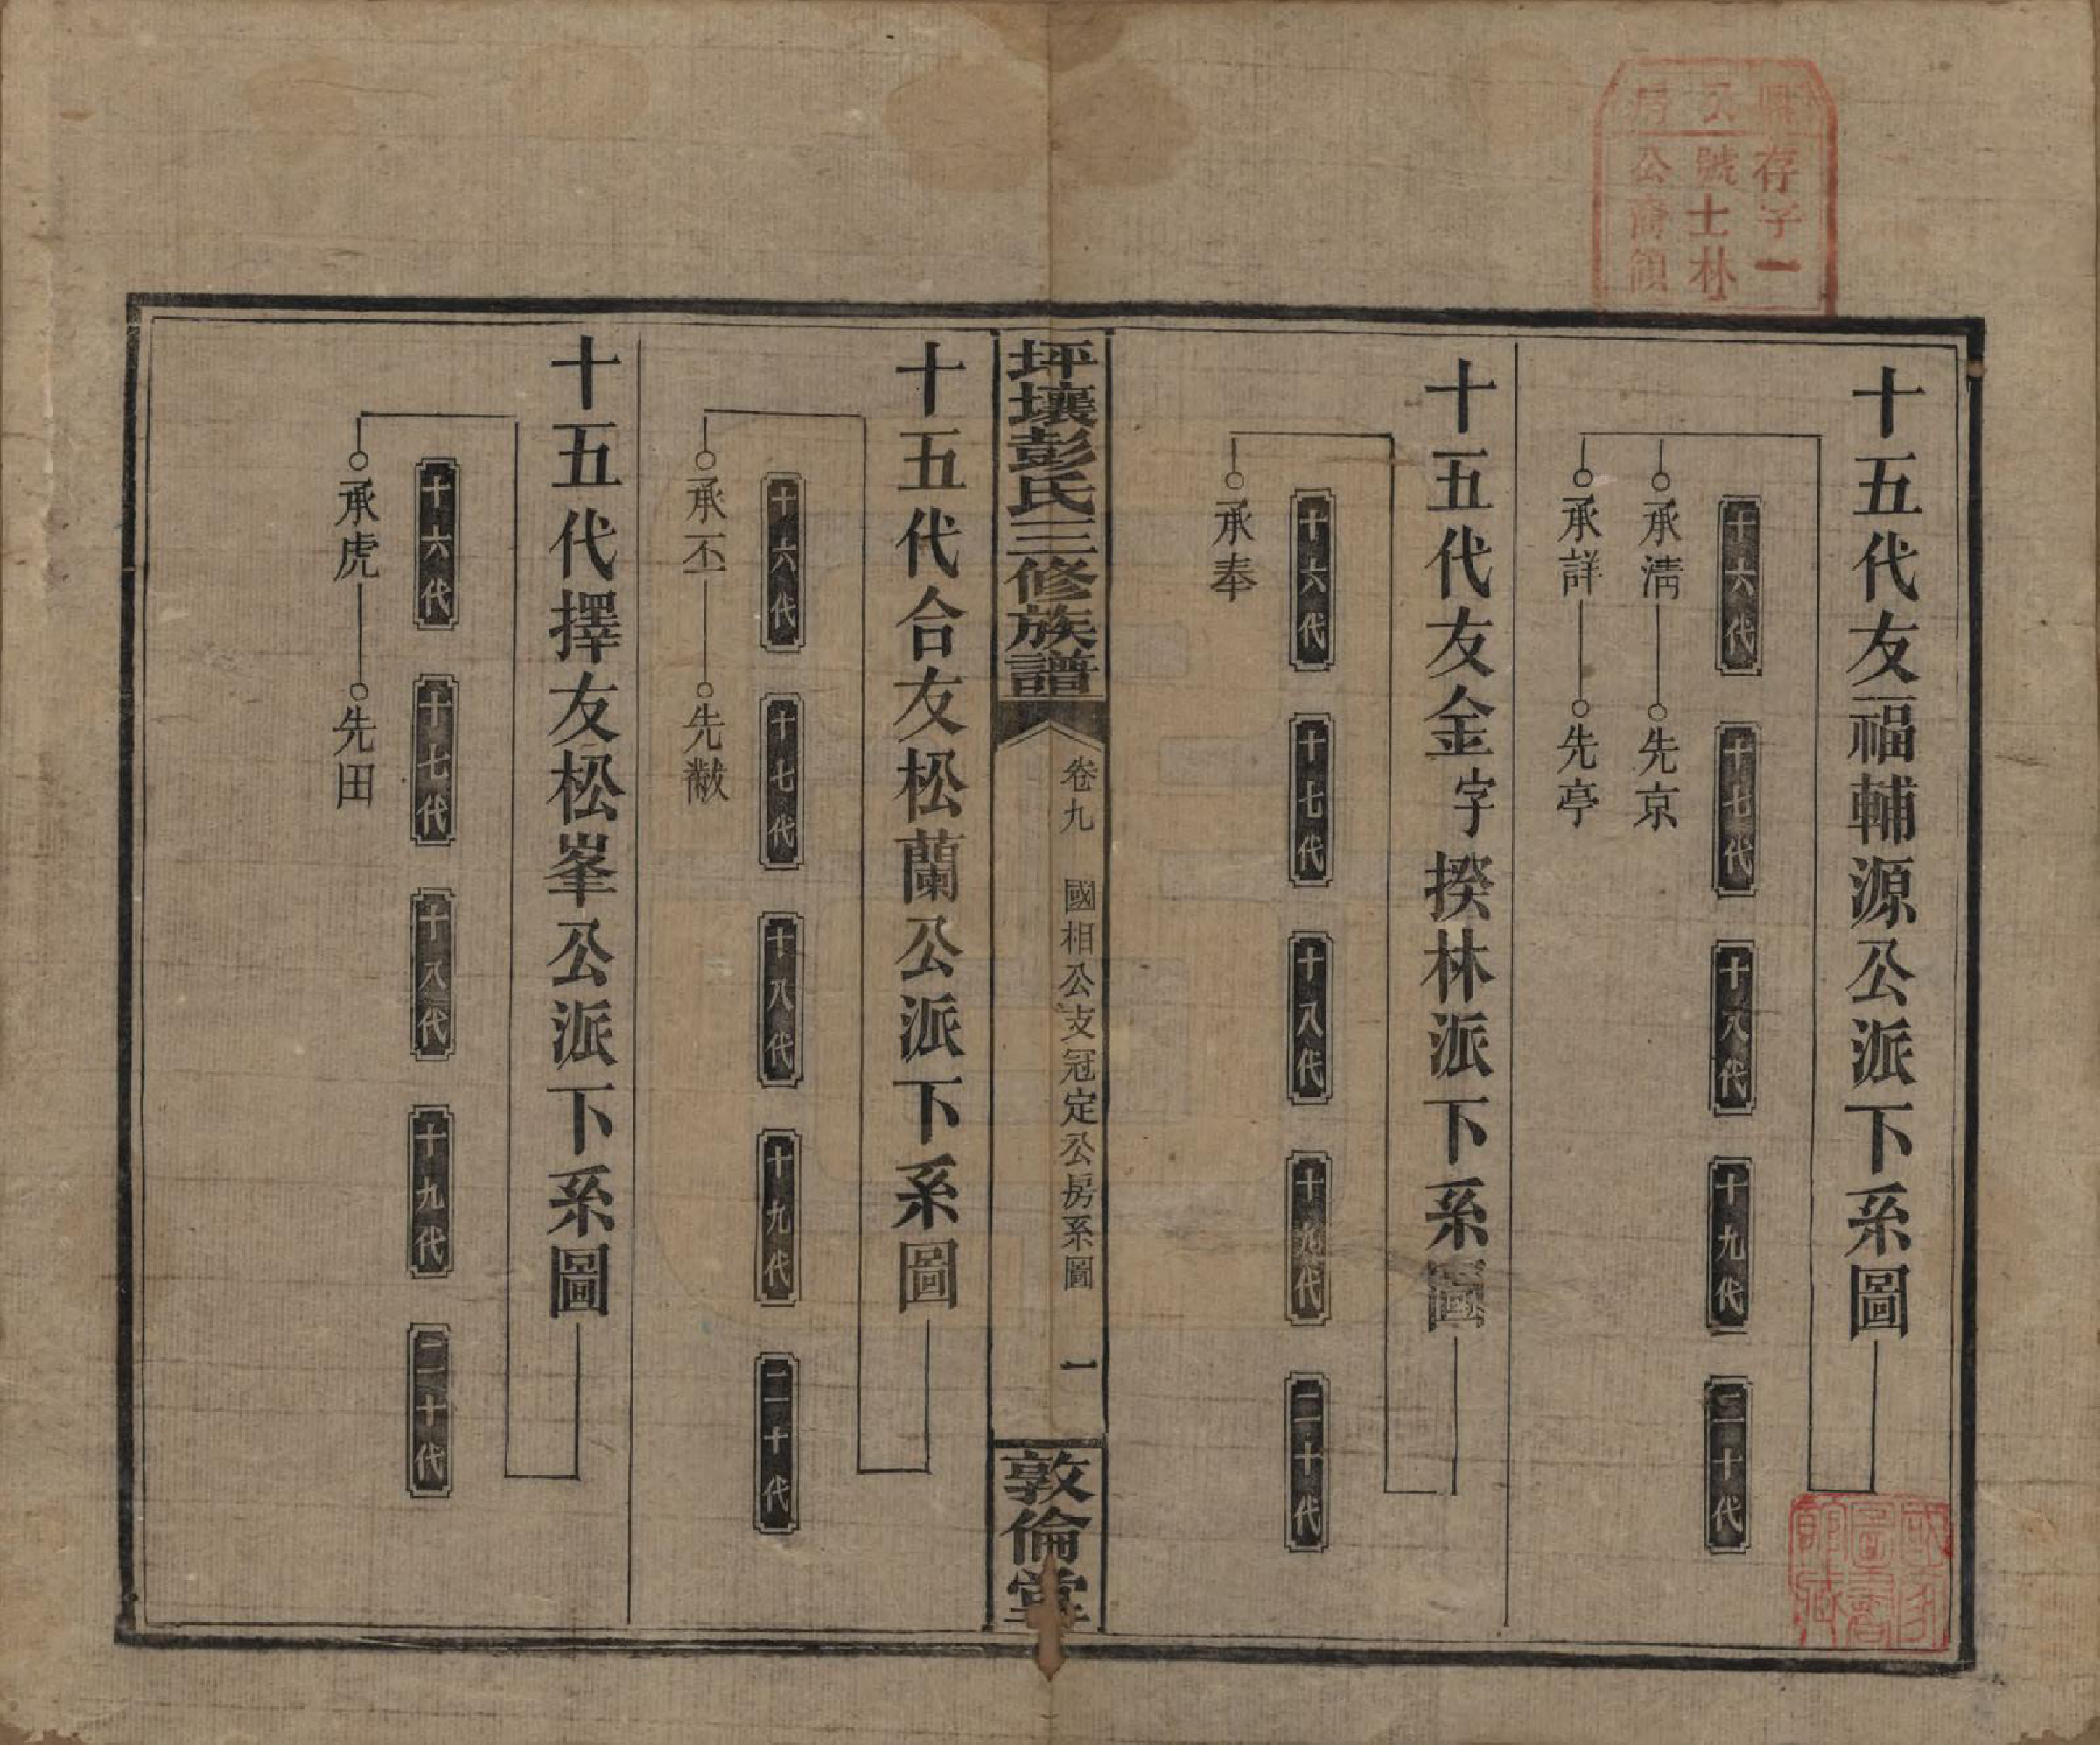 存字一
號士林
公裔領
十五代友福輔源公派下系圖
十六代 十七代 十八代 十九代 二十代
承淸 先京
承詳 先亭
十五代友金字揆林派下系圖
十六代 十七代 十八代 十九代 二十代
承奉
坪壤彭氏三修族譜 卷九 國相公支冠定公房系圖 一 敦倫堂
十五代合友松蘭公派下系圖
十六代 十七代 十八代 十九代 二十代
承丕 先黻
十五代擇友松峯公派下系圖
十六代 十七代 十八代 十九代 二十代
承虎 先田
國家圖書館藏